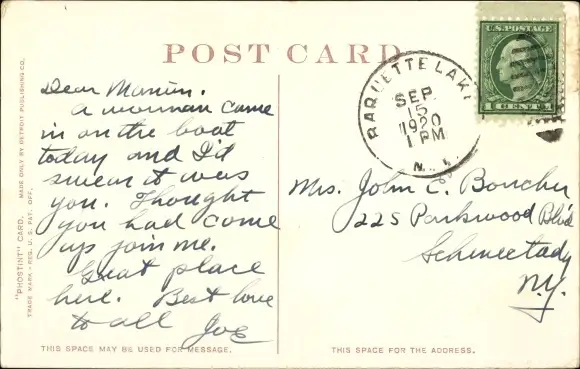 POST CARD
Dear Marion.
A woman came
in on the boat
today and I'd
swear it was
you. Thought
you had come
up join me.
Great place
here. Best love
to all Joe
THIS SPACE MAY BE USED FOR MESSAGE.
"PHOSTINT" CARD. MADE ONLY BY DETROIT PUBLISHING CO.
TRADE MARK - REG. U. S. PAT. OFF.
RAQUETTE LAKE
SEP.
15
1920
1 PM
N.Y.
U.S. POSTAGE
1 CENT 1
Mrs. John C. Boucher
225 Parkwood Blvd
Schenectady
N.Y.
THIS SPACE FOR THE ADDRESS.